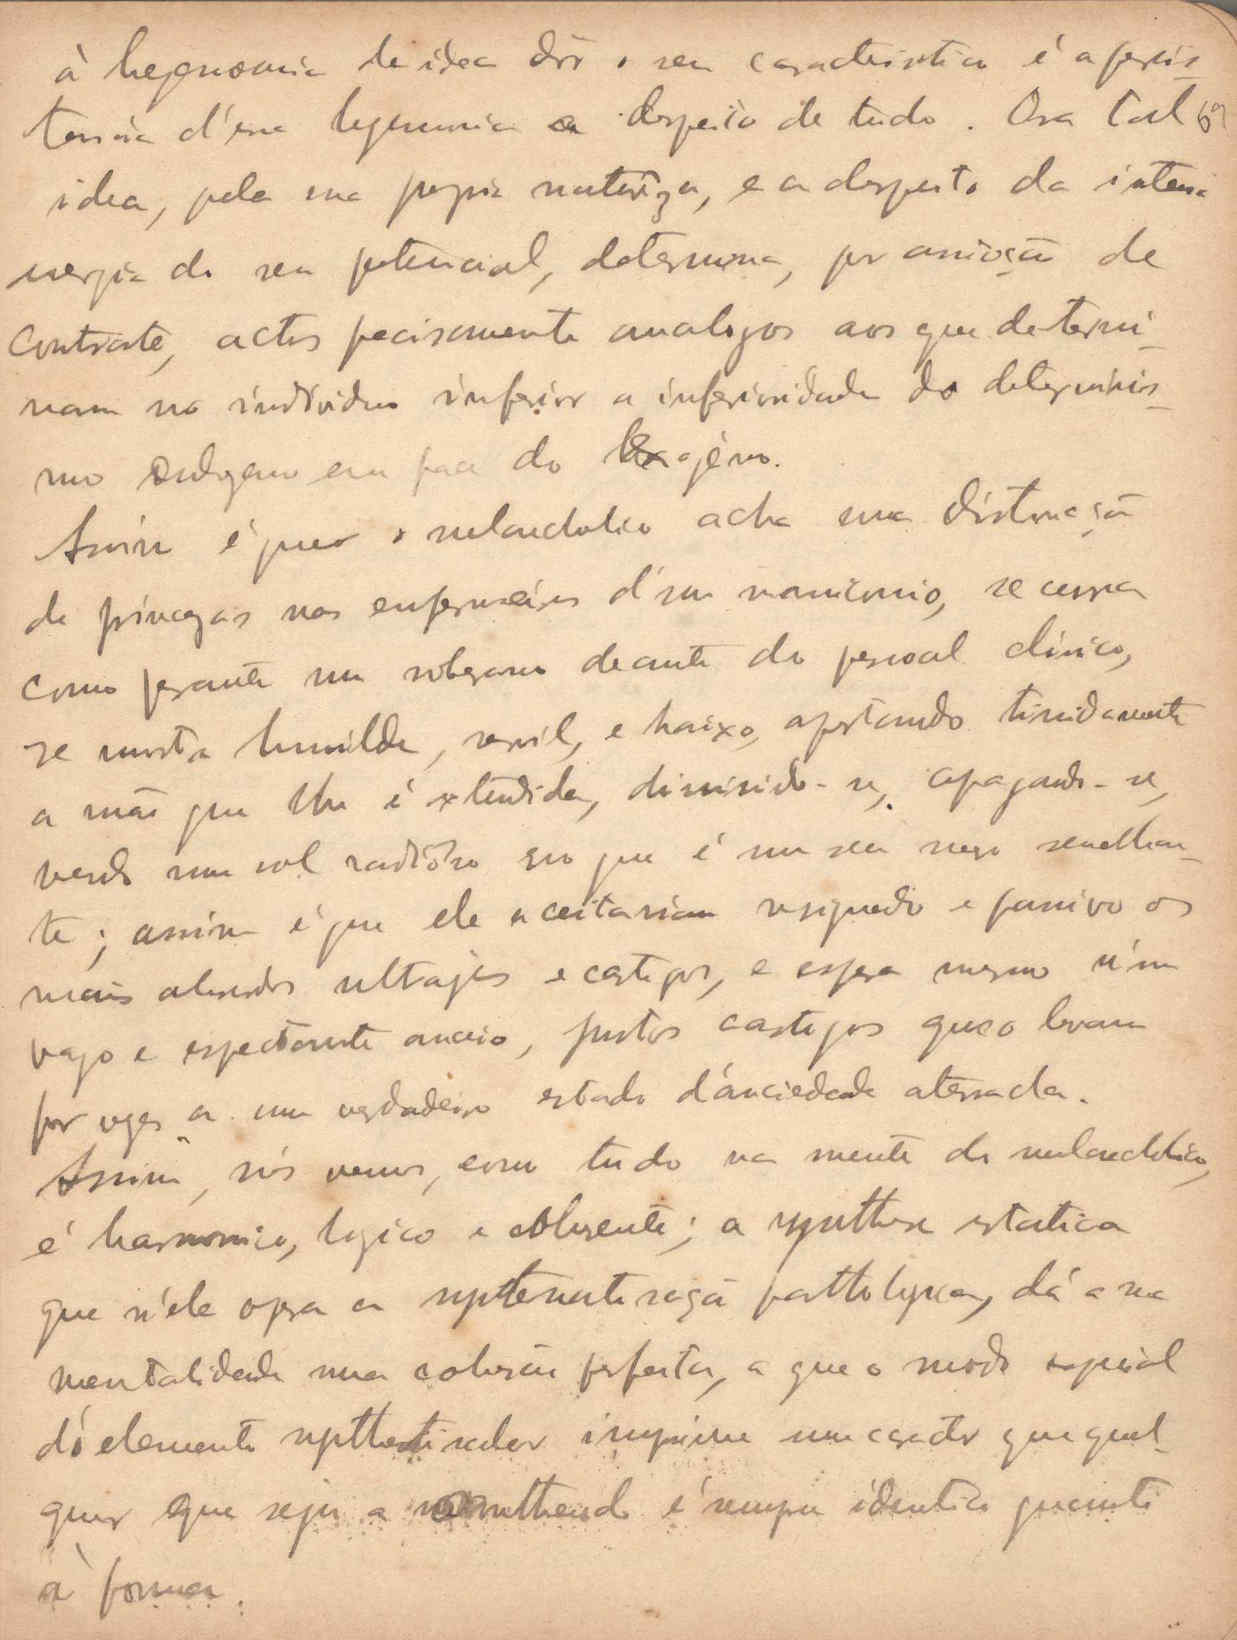 à hegemonia da idea dôr o seu caracteristica é a persis-
tencia d'essa hegemonia a despeito de tudo. Ora tal
idea, pela sua propria natureza, e a despeito da intensa
energia do seu potencial, determina, por associação de
contraste, actos precisamente analogos aos que determi-
nam no individuo inferior a inferioridade do determinis-
mo endogeno em face do exogéno.
Assim é que o melancholico acha uma distracção
de princezas nas enfermeiras d'um manicomio, se curva
como perante um soberano deante do pessoal clinico,
se mostra humilde, servil, e baixo, apertando timidamente
a mão que lhe é extendida, diminuindo-se, apagando-se,
vendo um sol radioso no que é um seu mero semelhan-
te; assim é que ele aceitariam resignado e passivo os
mais absurdos ultrajes e castigos, e espera mesmo n'um
vago e espectante anceio, justos castigos que o levam
por vezes a um verdadeiro estado d'anciedade aterrada.
Assim, nós vemos, como tudo na mente do melancholico,
é harmonico, logico e coherente; a synthese estatica
que n'ele opera a systematisação pathologica, dá a sua
mentalidade uma cohesão perfeita, a que o modo especial
do elemento synthetisador imprime um caracter que qual-
quer que seja a é sempre identico quanto
à forma.